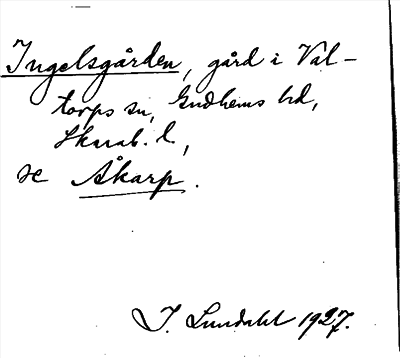 Ingelsgården, gård i Val-
torps sn, Gudhems hd,
Skarab. l,
se Åkarp.
I. Lundahl 1927.